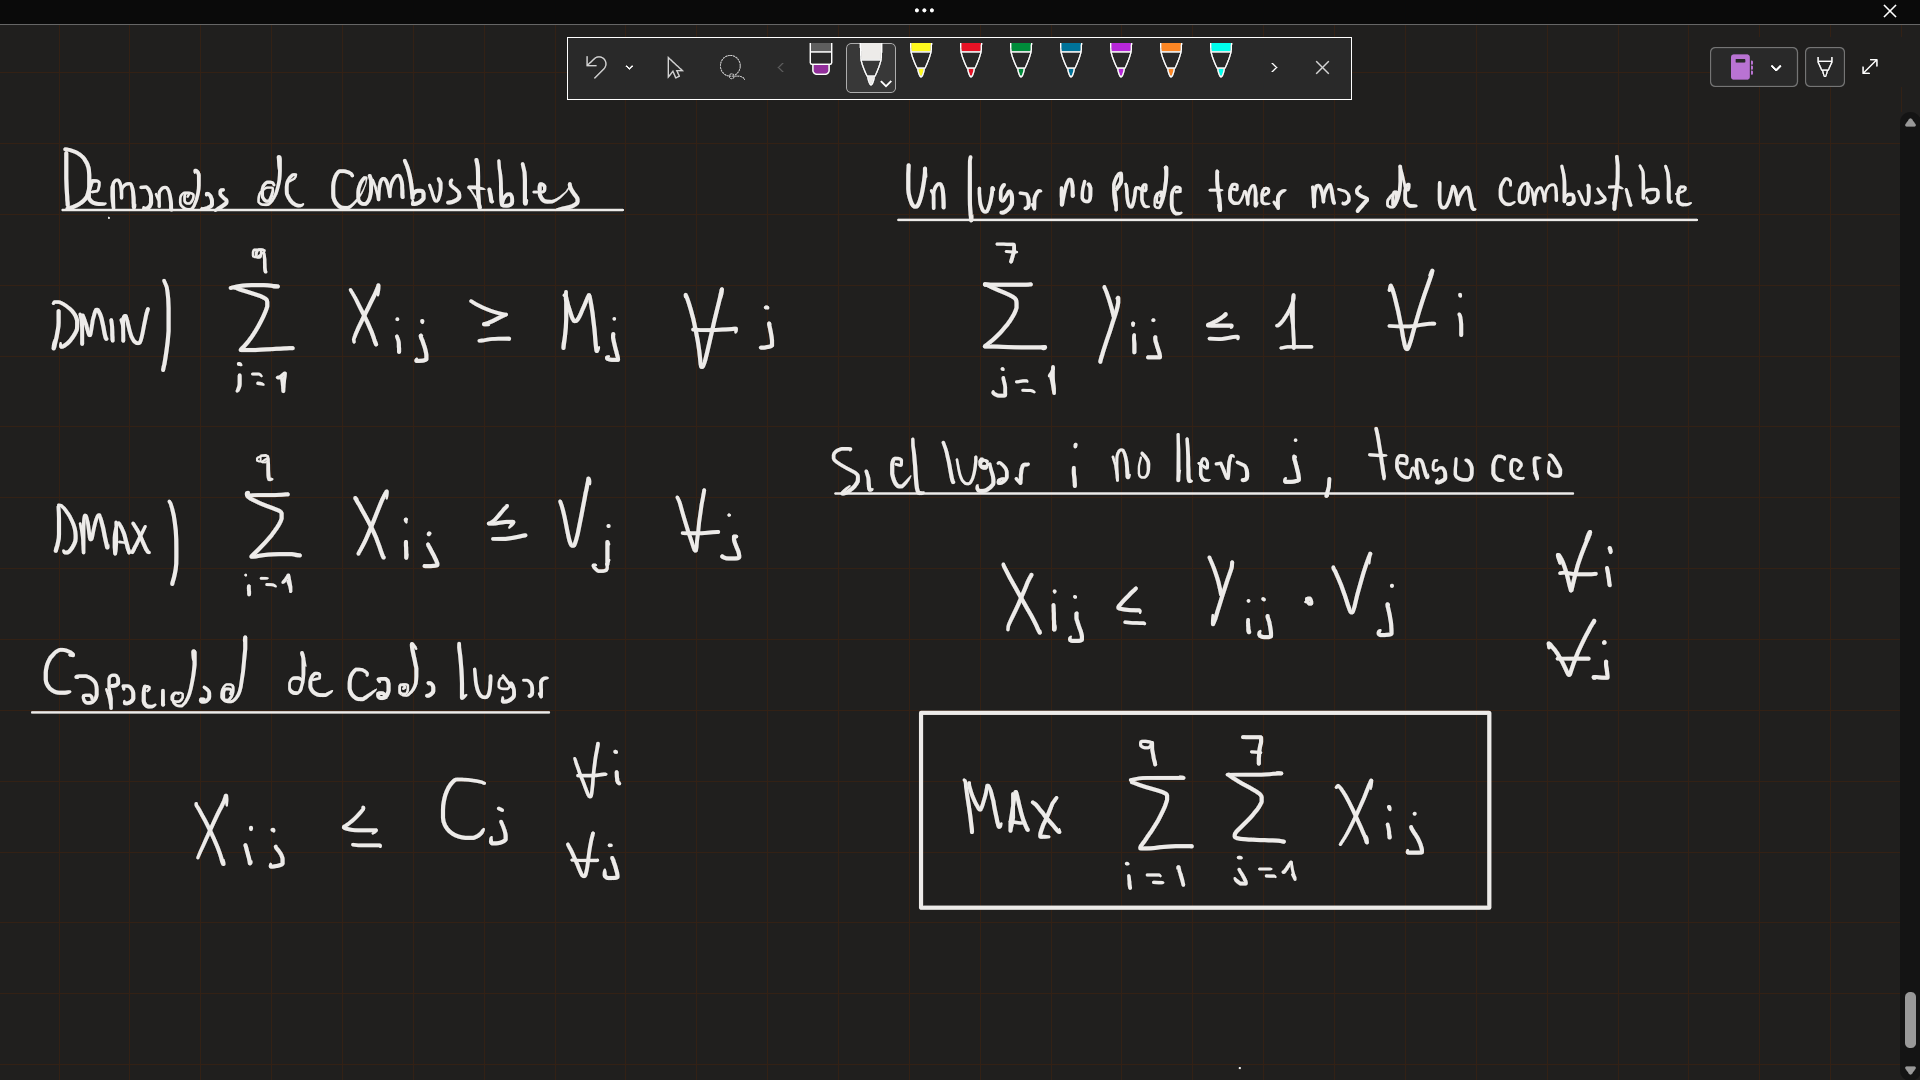 Demandas de combustibles
DMIN) \sum_{i=1}^{9} X_{ij} ≥ M_j ∀j
DMAX) \sum_{i=1}^{9} X_{ij} ≤ V_j ∀j
Capacidad de cada lugar
X_{ij} ≤ C_j ∀i ∀j
Un lugar no puede tener mas de un combustible
\sum_{j=1}^{7} y_{ij} ≤ 1 ∀i
Si el lugar i no lleva j, tengo cero
X_{ij} ≤ y_{ij} · V_j ∀i ∀j
MAX \sum_{i=1}^{9} \sum_{j=1}^{7} X_{ij}